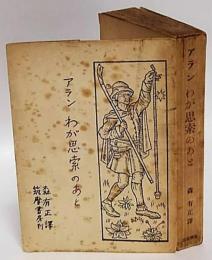 アラン わが思索のあと
森有正譯
筑摩書房刊
アラン わが思索のあと
森 有正譯